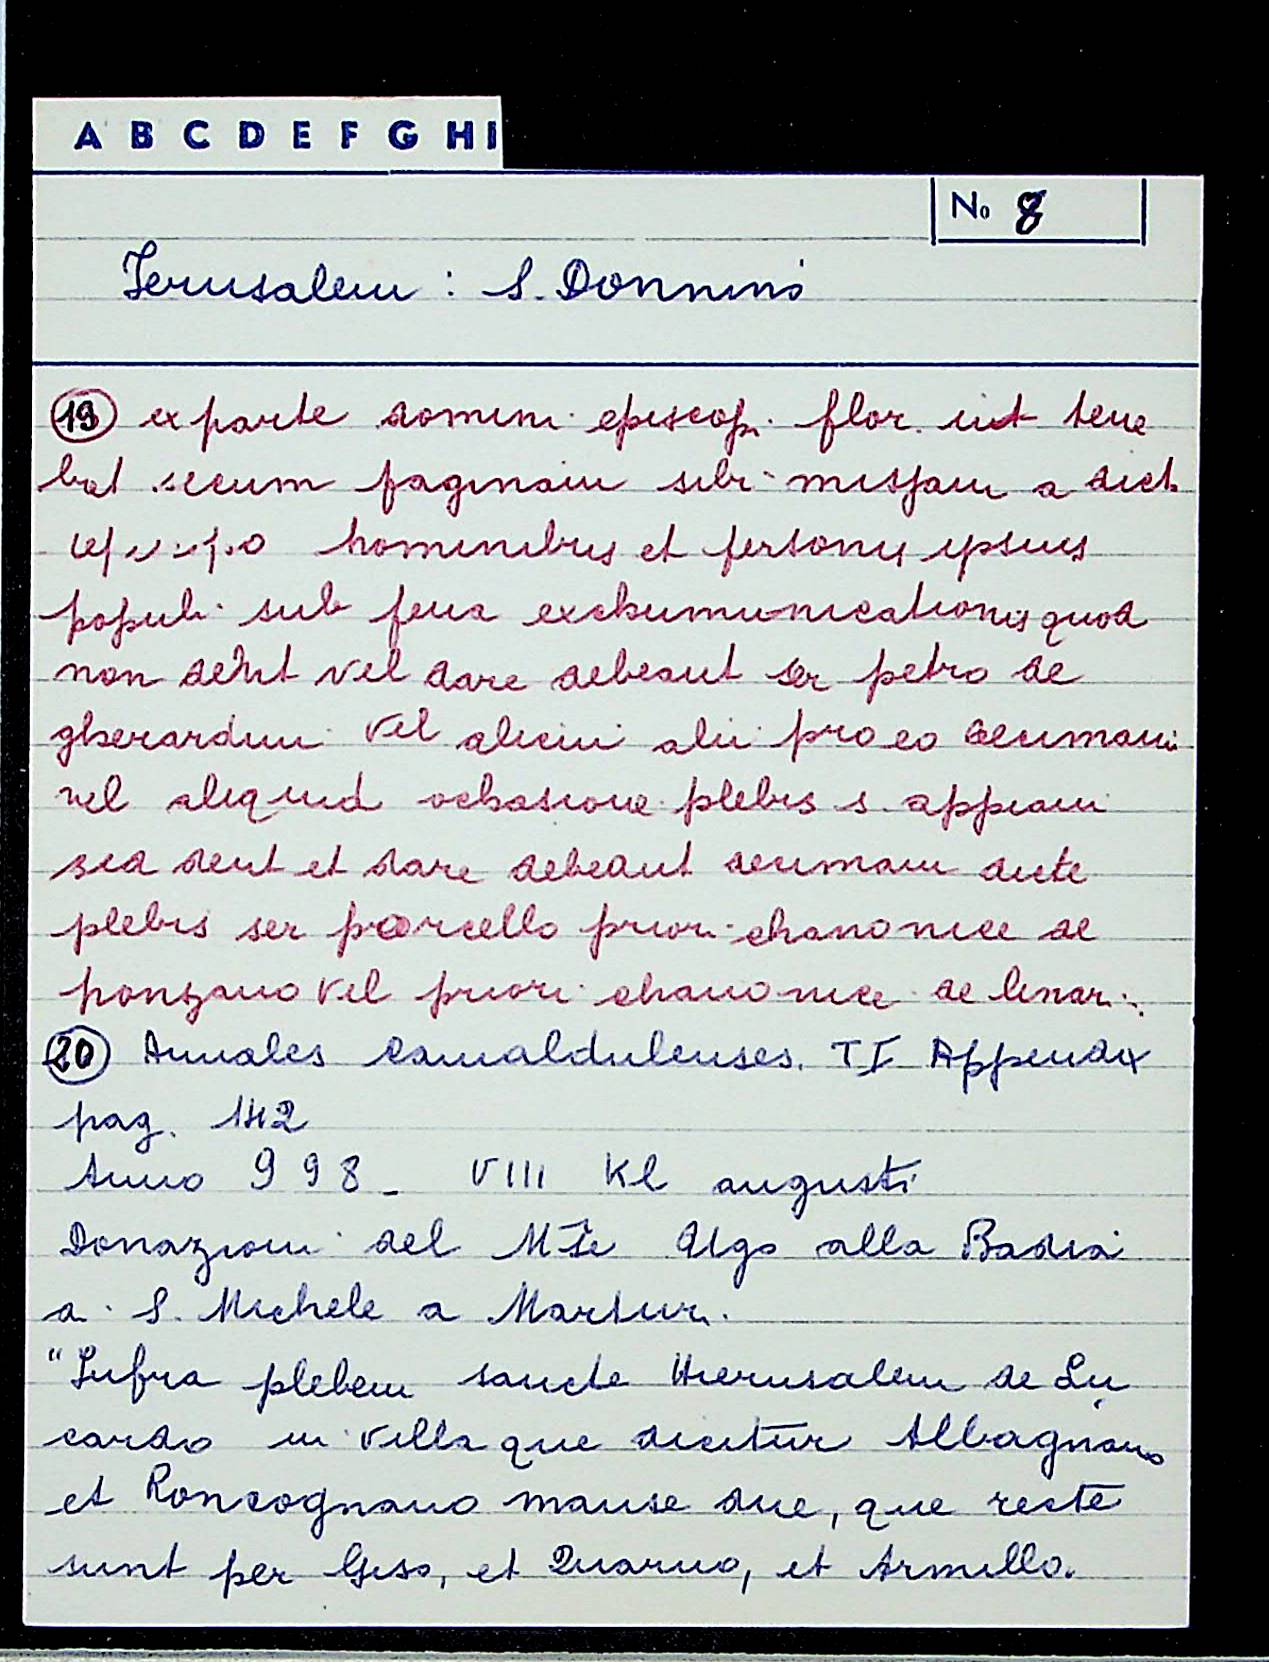 A B C D E F G H I
No 8
Jerusalem : S. Donnino
19 ex parte domini episcop. flor. ut tene
bat secum paginam sibi missam a dict.
hominibus et personis ipsius
populi sub pena exchumunicationis quod
non debnt vel dare debeant ser petro de
gherarduni vel alicui alii pro eo decimam
vel aliquid ochasione plebis s. appiani
sed dent et dare debeant decimam dicte
plebis ser porcello priori chanonice de
ponzano vel priori chanonice de linar.
20 Annales Camaldulenses. T I Appendix
pag. 142
Anno 998 - VIII Kl augusti
Donazioni del M.se Ugo alla Badia
a S. Michele a Marturi.
"Infra plebem sancte Hierusalem de Lu
cardo in villa que dicitur Albagnano
et Roncognano manse due, que recte
sunt per Giso, et Quaruo, et Armillo.